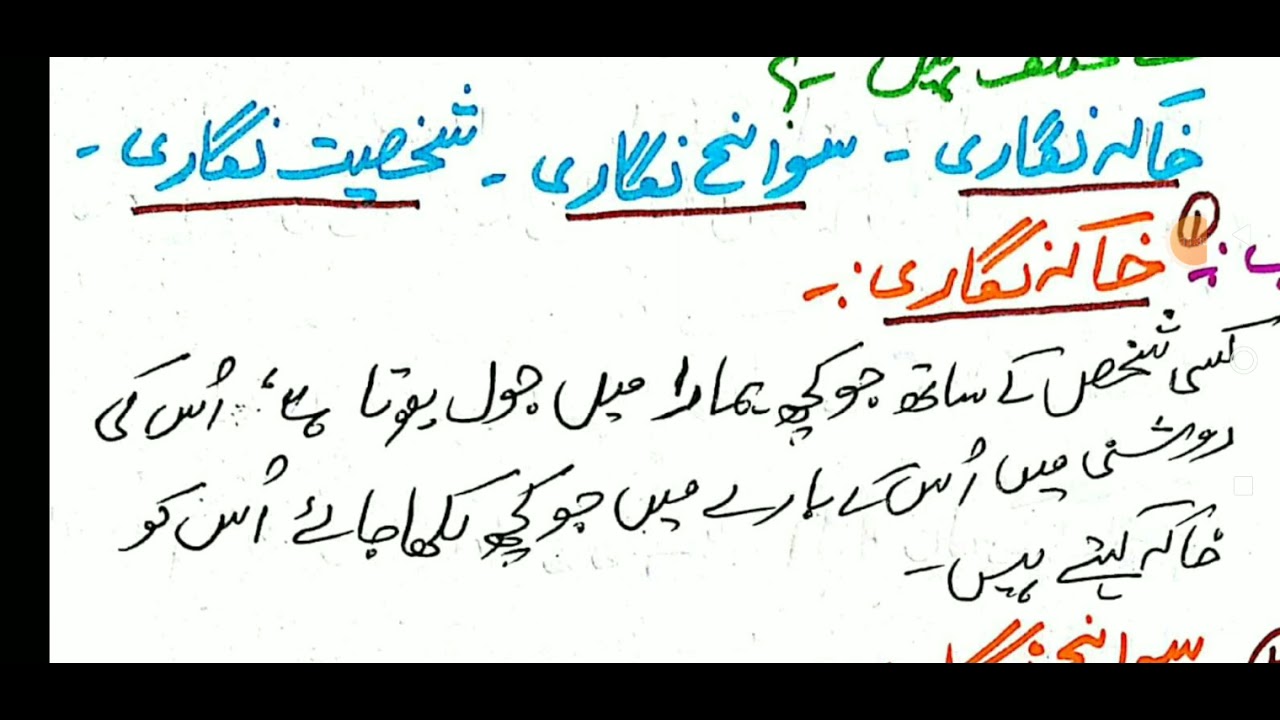 مختلف ہیں ؟
خاکہ نگاری - سوانح نگاری - شخصیت نگاری -
① خاکہ نگاری :-
کسی شخص کے ساتھ جو کچھ ہمارا میل جول ہوتا ہے، اُس کی
روشنی میں اُس کے بارے میں جو کچھ لکھا جائے اُس کو
خاکہ کہتے ہیں -
سوانح نگا